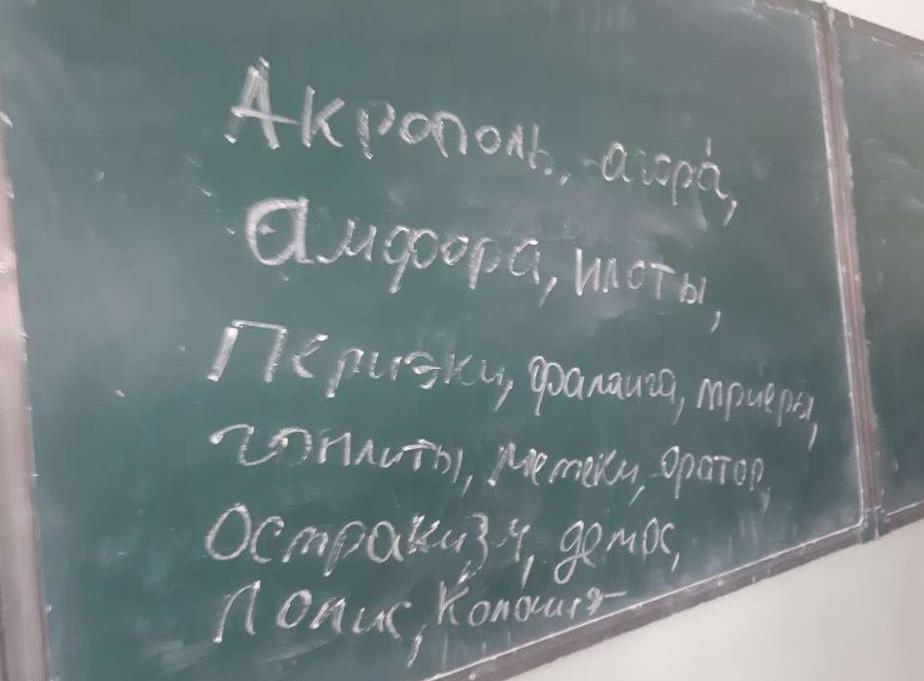 Акрополь, агора́,
амфора, илоты,
Периэки, фаланга, триеры,
гоплиты, метеки, оратор,
Остракизм, демос,
Полис, Колония